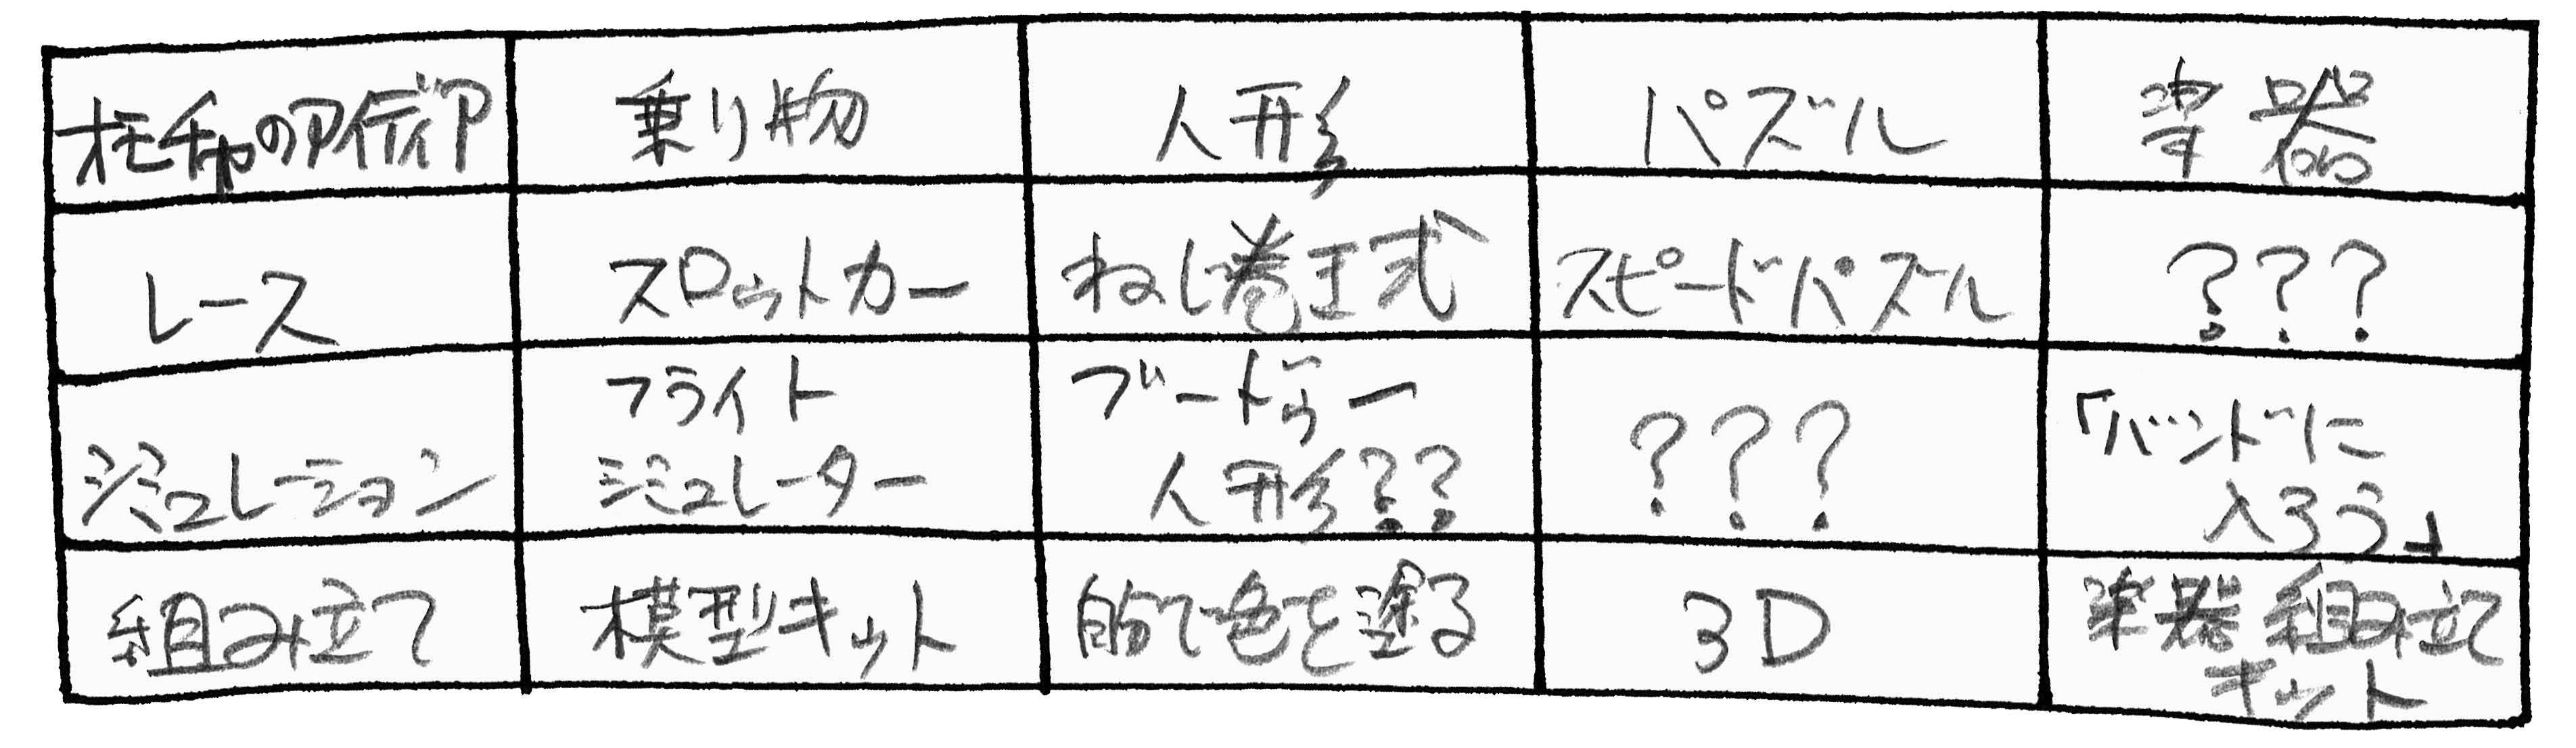 オモチャのアイディア 乗り物 人形 パズル 楽器
レース スロットカー ねじ巻き式 スピードパズル ???
シミュレーション フライト シミュレーター ブードゥー 人形?? ??? 「バンドに 入ろう」
組み立て 模型キット 自分で色を塗る 3D 楽器組み立て キット